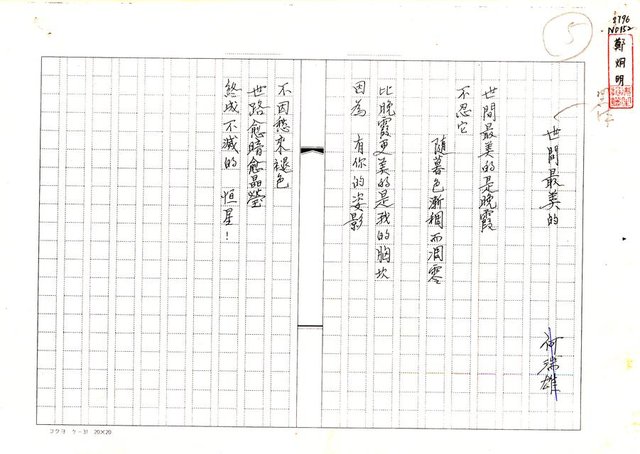 5
2796
鄭烱明
世間最美的
何瑞雄
世間最美的是晚霞
不忍它
隨暮色漸稠而凋零
比晚霞更美的是我的胸坎
因為 有你的姿影
不因愁來褪色
世路愈暗愈晶瑩
終成不滅的 恒星！
コクヨ ケ-31 20×20